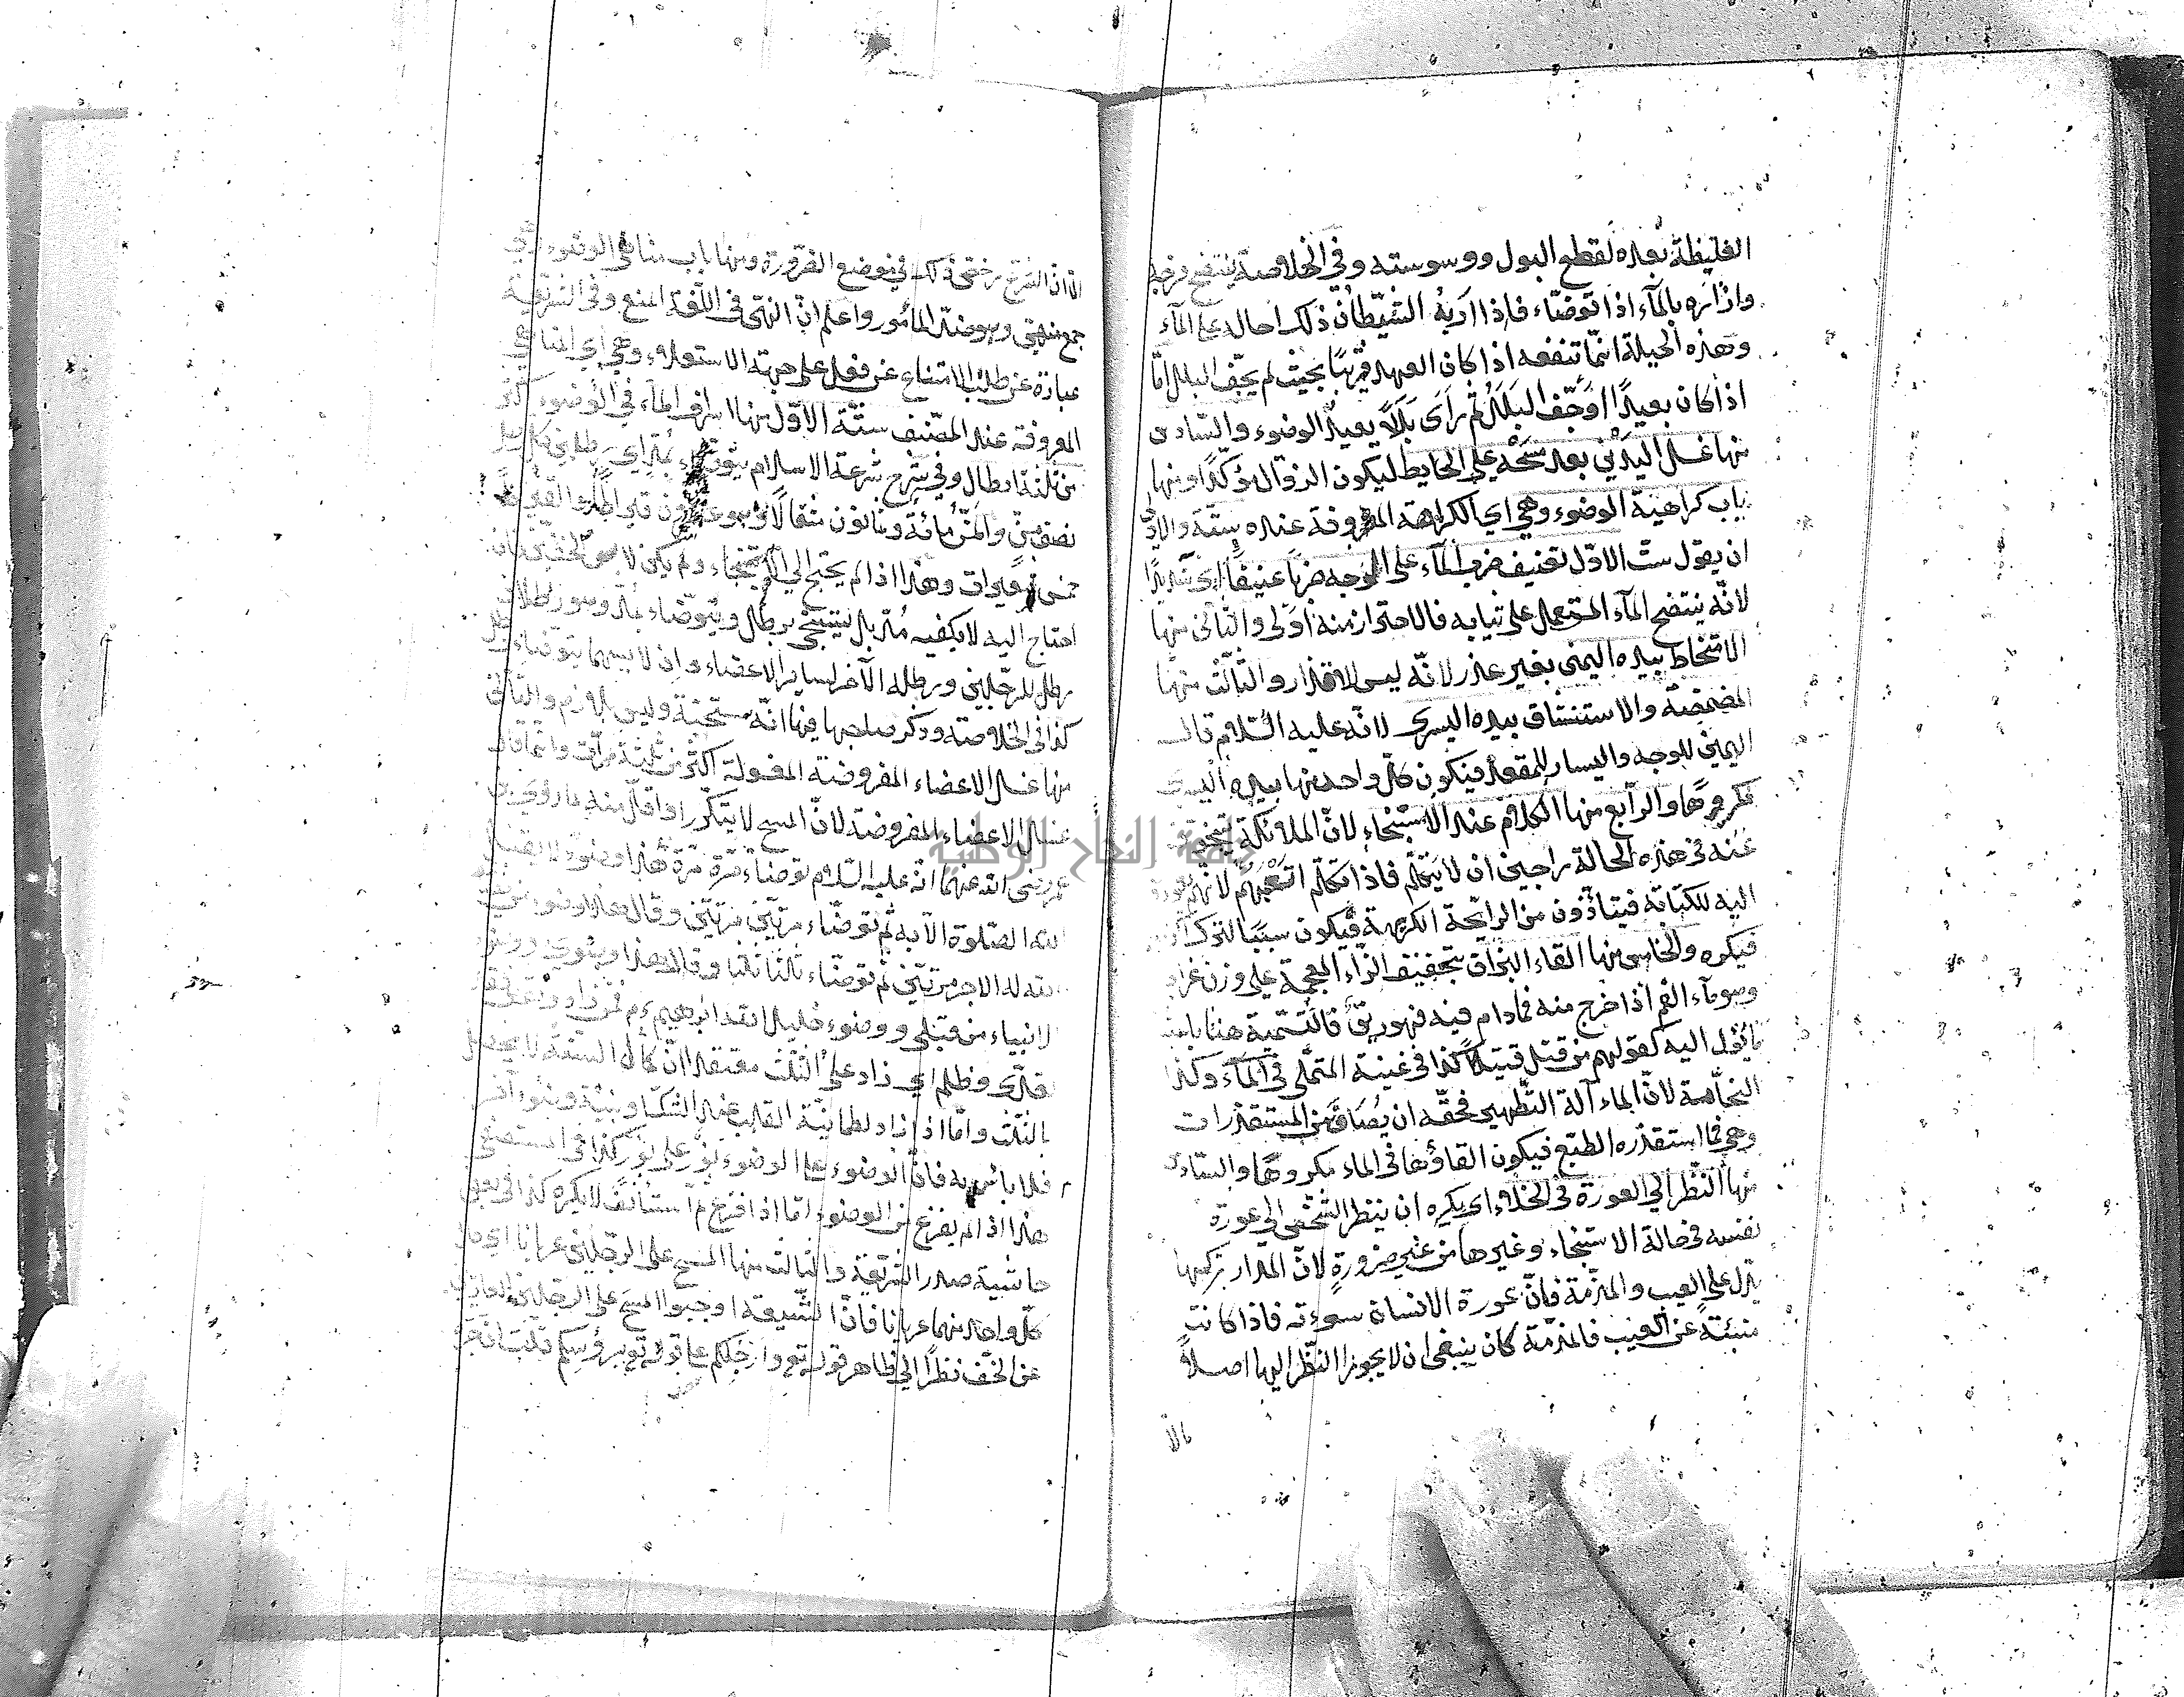 الغليظة بعده لقطع البول ووسوسته وفي الخلاصة ينتضح فرجه
وازاره بالمآء اذا توضّاء فاذا اربه الشيطان ذلك احاله على المآء
وهذه الحيلة انّما تنفعه اذا كان العهد قريبًا بحيث لم يجفّ البلل امّا
اذا كان بعيدًا اوجفّ البلل ثم رأى بللًا يعيد الوضوء والسّادس
منها غسل اليدين بعد مسحه على الحايط ليكون الزوال مؤكّدًا ومنها
باب كراهية الوضوء وهي اي الكراهة المعروفة عنده ستّة والاولى
ان يقول ستّ الاوّل تعنيف ضرب المآء على الوجه ضربًا عنيفًا اى شديدًا
لانّه ينتضح المآء المستعمل على ثيابه فالاحتراز منه اولى والثّاني منها
الامتخاط بيده اليمنى بغير عذر لانّه ليس للاقذار والثّالث منها
المضمضة والاستنشاق بيده اليسرى لانّه عليه السّلام قال
اليمين للوجه واليسار للمقعد فيكون كلّ واحد منها بيده اليسرى
مكروهًا والرّابع منها الكلام عند الاستنجاء لانّ الملائكة
عنه في هذه الحالة راجين ان لا يتكلّم فاذا تكلّم اتعبهم لانهم
اليه للكتابة فيتأذّون من الرايحة الكريهة فيكون سببًا
فيكره والخامس منها القاء البزاق بتخفيف الزّاء المعجمة على وزن غراب
وهو مآء الفم اذا خرج منه فمادام فيه فهو ريق فالتّسمية هنا
ما يؤل اليه كقولهم من قتل قتيلًا كذا في غنية المتملّي في المآء وكذا
النخّامة لانّ الماء آلة التّطهير فحقّه ان يصان من المستقذرات
وهي مما استقذره الطّبع فيكون القاؤها في الماء مكروهًا والسّادس
منها النّظر الى العورة في الخلاء اى يكره ان ينظر الشّخص الى عورة
نفسه في حالة الاستنجاء وغيرها من غير ضرورة لانّ المدار تركيبها
يدل على العيب والمذمّة فانّ عورة الانسان سوءته فاذا كانت
منبئة عن العيب فالمذمّة كان ينبغى ان لا يجوز النّظر اليها اصلًا
الّا
انّ الشّرع رخّص ذلك في موضع الضرورة ومنها باب مناهي الوضوء
جمع منهيّ وهو ضدّ المأمور واعلم انّ النّهى في اللّغة المنع وفي الشريعة
عبارة عن طلب الامتناع عن فعل على جهة الاستعلاء وهي اي المناهي
المعروفة عند المصنّف ستّة الاوّل منها اسراف المآء في الوضوء
من ثلثة ارطال وفي شرح شرعة الاسلام يتوضّاء بمدّ اي رطلين
نصف منّ والمنّ مائة وثمانون مثقالًا
وهذا اذا لم يحتج الى الاستنجاء ولم يكن لابس الخفّ فان
احتاج اليه لا يكفيه مدّ بل يستنجي برطل ويتوضّاء بمدّ
رطل للرجلين ورطله الآخر لساير الاعضاء وان لابسهما يتوضّاء
كذا في الخلاصة وذكر صاحبها فيها انّه مستحبّة وليس بلازم والثّاني
منها غسل الاعضاء المفروضة المغسولة اكثر من ثلثة مرّات وانّما قال
غسل الاعضاء المفروضة لانّ المسح لا يتكرّر او اقلّ منه ما روى
عمر رضى الله عنهما انّه عليه السّلام توضّاء مرّة مرّة هذا وضوء لا يقبل
الله الصّلوة الّا به ثم توضّاء مرّتين مرّتين وقال هذا وضوء من
الله له الاجر مرّتين ثم توضّاء ثلثًا ثلثًا وقال هذا وضوئى ووضوء
الانبياء من قبلى ووضوء خليل الله ابرهيم فمن زاد
تعدّى وظلم اي زاد على الثّلث معتقدا انّ كمال السّنّة لا يحصل
بالثّلث وامّا اذا زاد لطمانيّة القلب عند الشّكّ او بنيّة وضوء آخر
فلا بأس به فانّ الوضوء على الوضوء نور على نور كذا في
هذا اذا لم يفرغ من الوضوء امّا اذا فرغ ثم استأنف لا يكره كذا في
حاشية صدر الشّريعة والثّالث منها المسح على الرّجلين عريانا
كلّ واحد منهما عريانا فانّ الشّيعة اوجبوا المسح على الرّجلين
عن الخفّ نظرًا الى ظاهر قوله تعالى وارجلكم
جامعة النجاح الوطنية